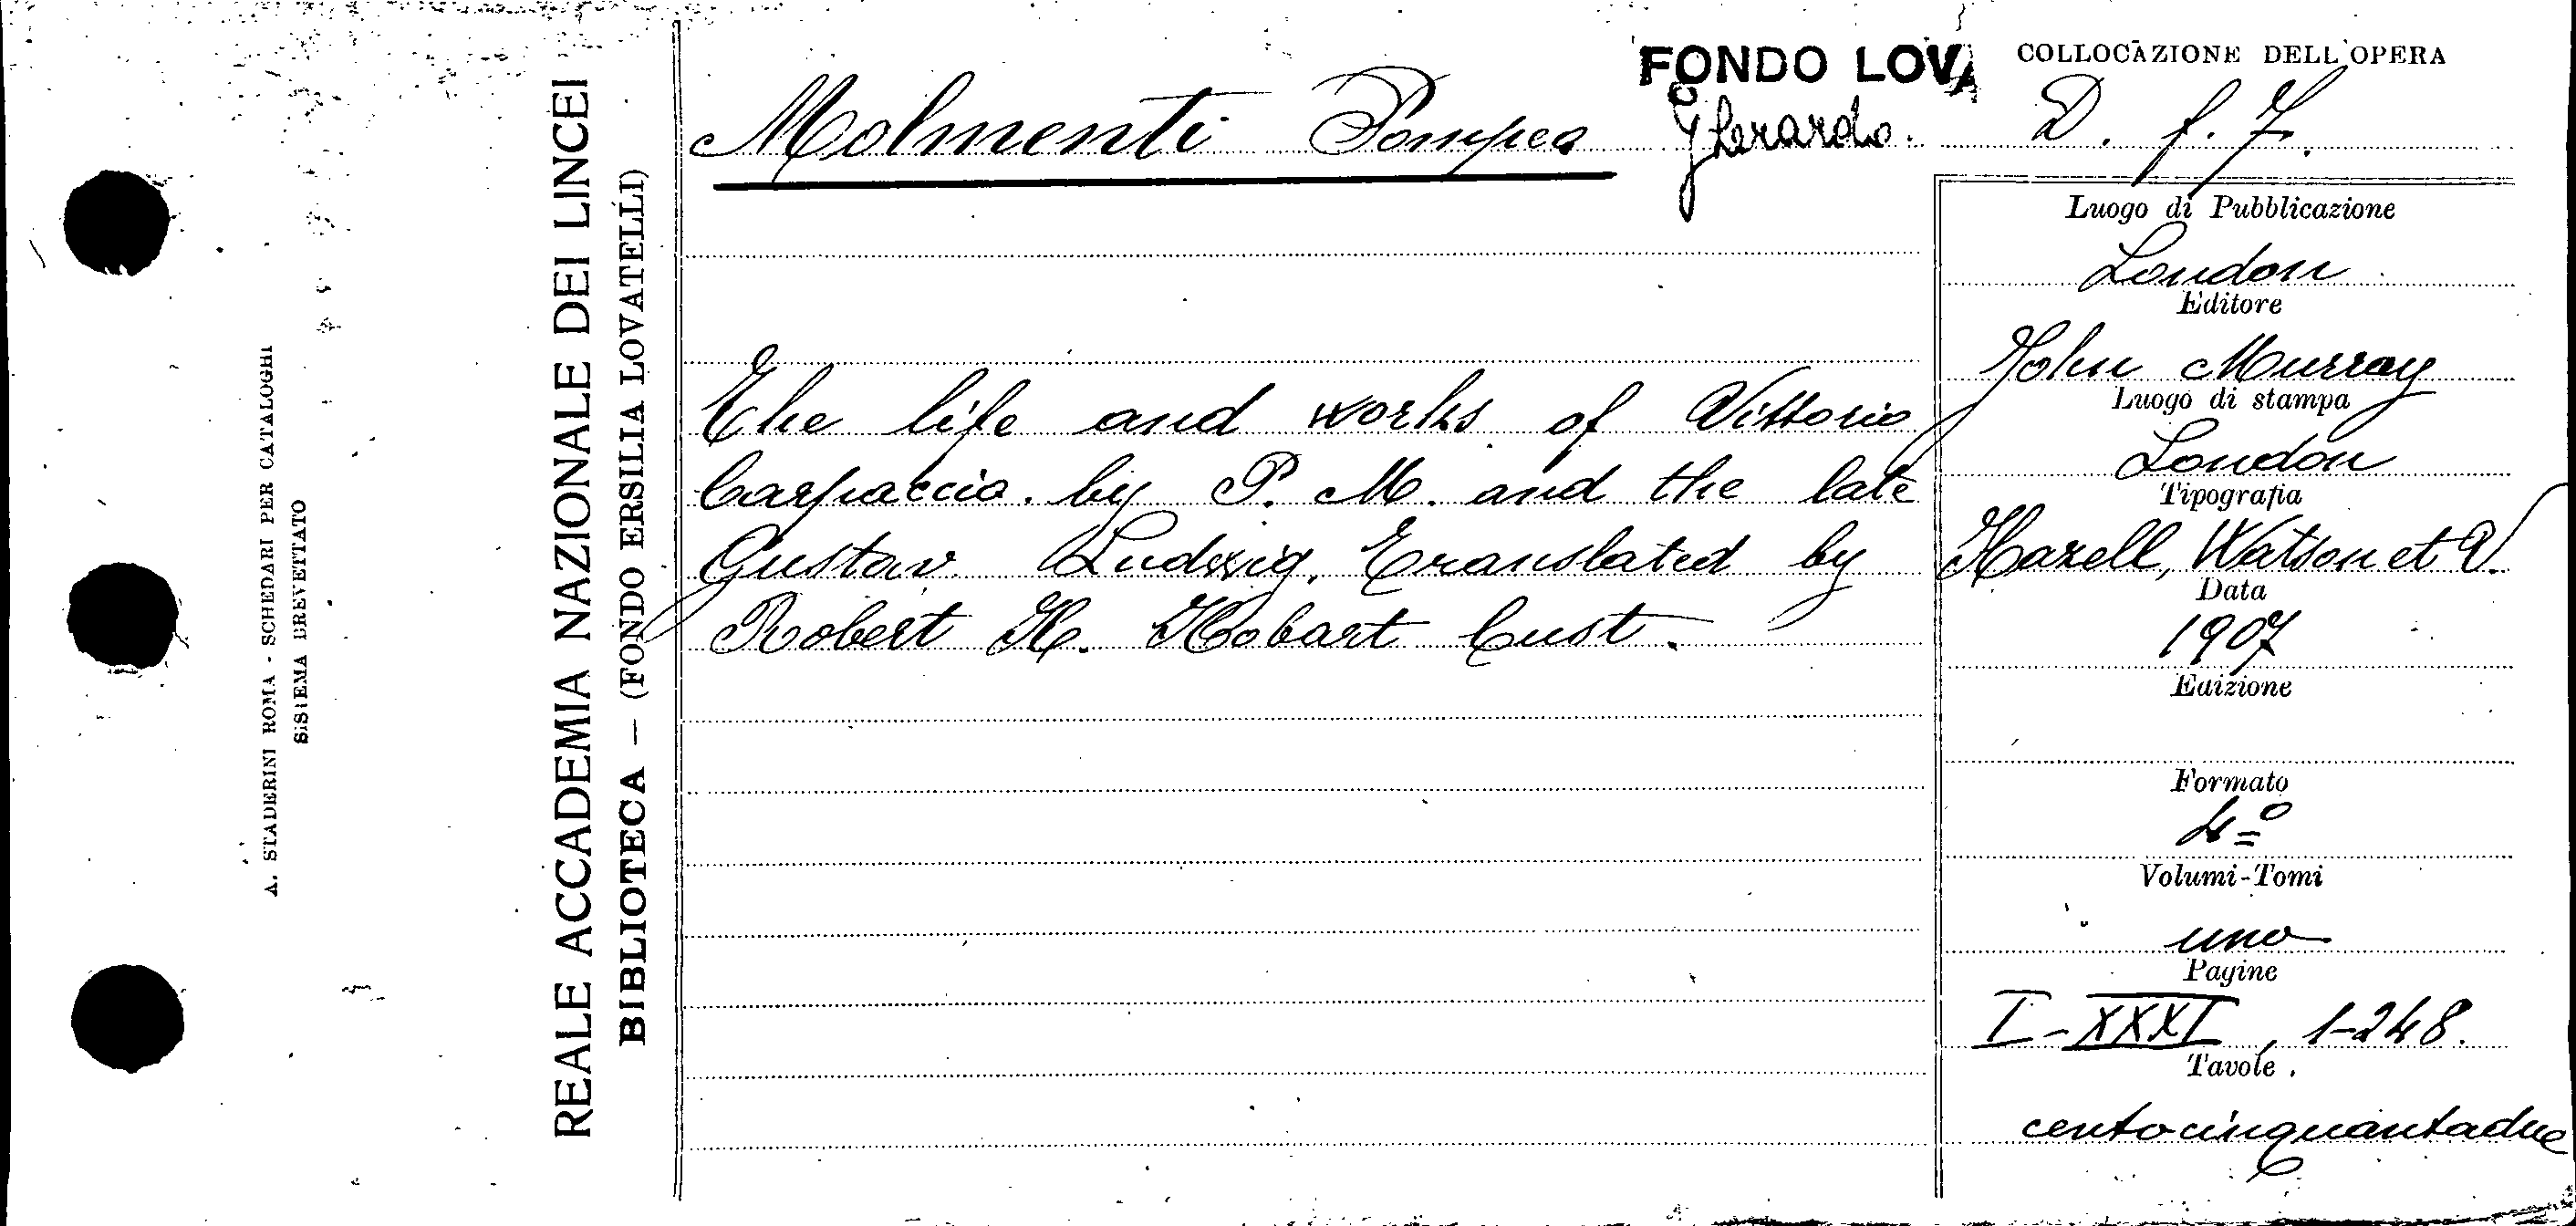 A. STADERINI ROMA - SCHEDARI PER CATALOGHI
SISTEMA BREVETTATO
REALE ACCADEMIA NAZIONALE DEI LINCEI
BIBLIOTECA — (FONDO ERSILIA LOVATELLI)
FONDO LOVA
COLLOCAZIONE DELL'OPERA
Molmenti Pompeo Gherardo.
D. f. 7.
The life and works of Vittorio
Carpaccio. by P. M. and the late
Gustav Ludwig. Translated by
Robert H. Hobart Cust.
Luogo di Pubblicazione
London
Editore
John Murray
Luogo di stampa
London
Tipografia
Hazell, Watson et V.
Data
1907
Edizione
Formato
4º
Volumi-Tomi
uno
Pagine
I-XXXI, 1-248.
Tavole
centocinquantadue